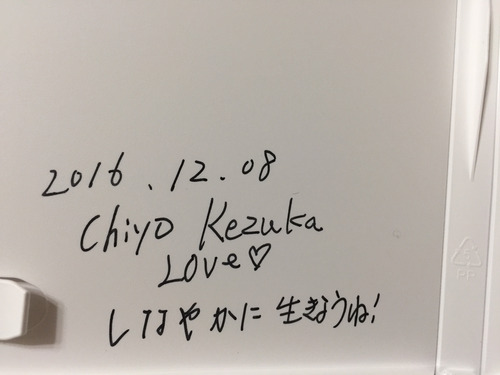 2016.12.08
Chiyo Kezuka
LOVe♡
しなやかに生きようね!
PP